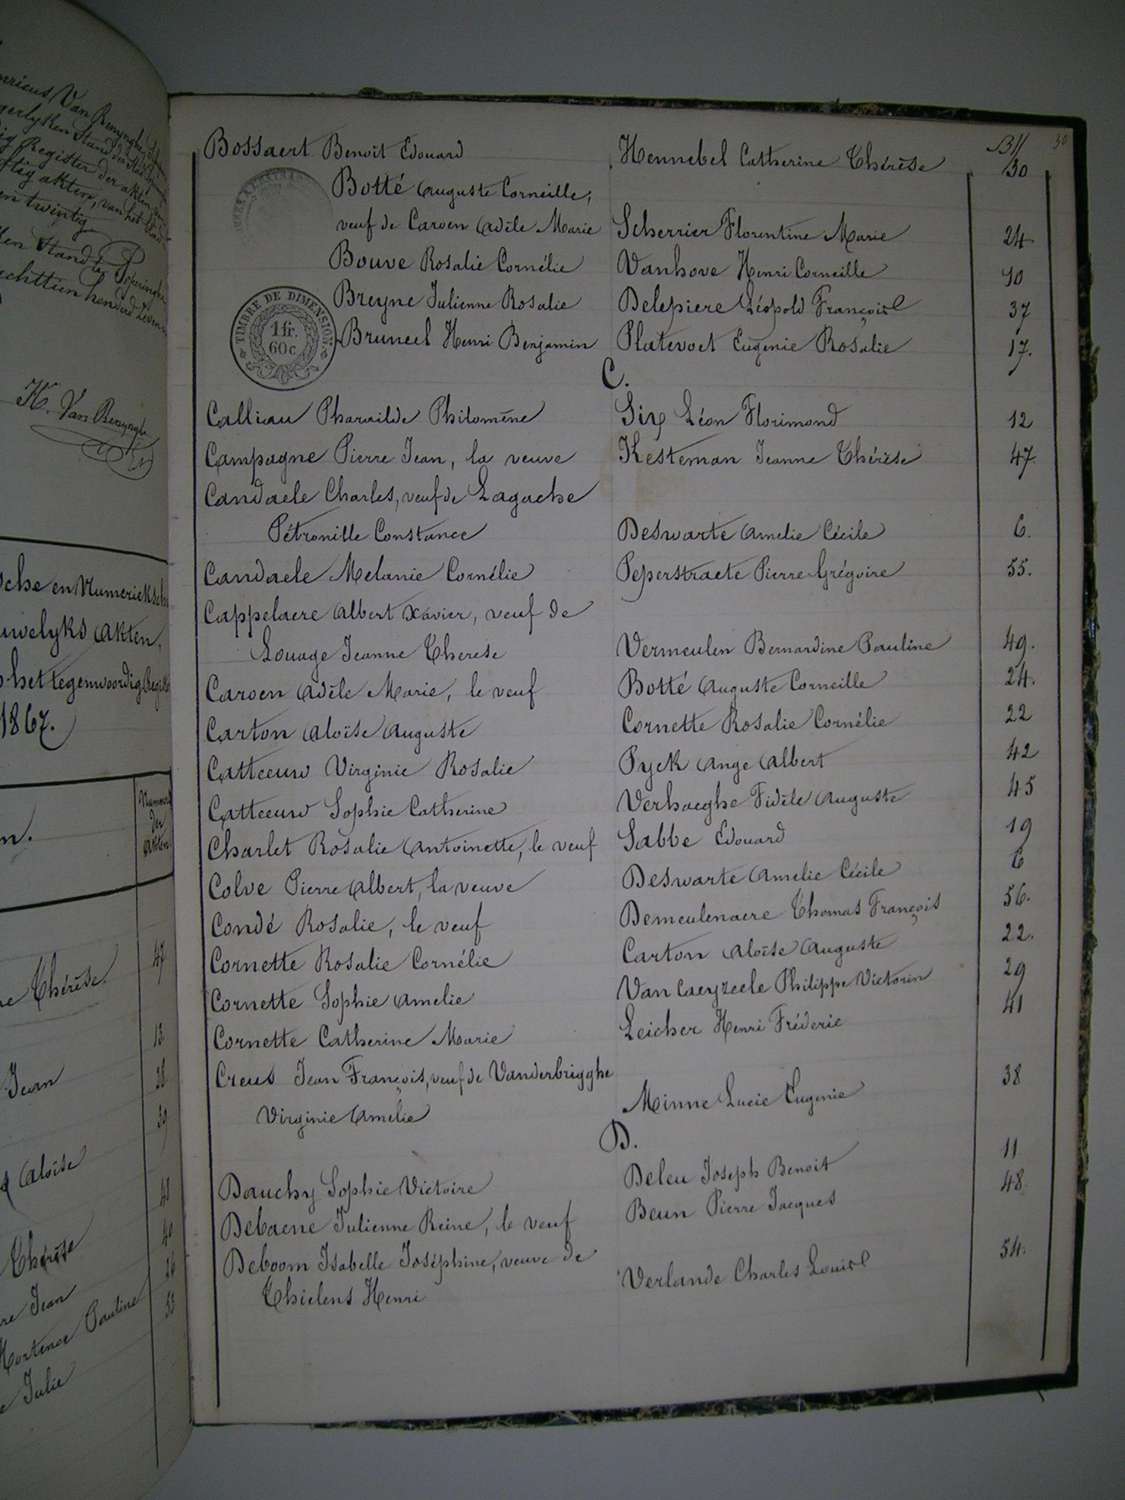 Bll 30
Bossaert Benoit Edouard Hennebel Catherine Thérèse 30
Botté Auguste Corneille,
veuf de Caroen Adèle Marie Scherrier Florentine Marie 24
Bouve Rosalie Cornélie Vanhove Henri Corneille 10
Breyne Julienne Rosalie Delepiere Léopold François 37
TIMBRE DE DIMENSION
1 fr.
60 c
Bruneel Henri Benjamin Platevoet Eugenie Rosalie 17.
C.
Calliau Pharaïlde Philomène Six Léon Florimond 12
Campagne Pierre Jean, la veuve Kesteman Jeanne Thérèse 47
Candaele Charles, veuf de Lagache
Pétronille Constance Deswarte Amelie Cécile 6.
Candaele Melanie Cornélie Peperstraete Pierre Grégoire 55.
Cappelaere Albert Xavier, veuf de
Louage Jeanne Therese Vermeulen Bernardine Pauline 49.
Caroen Adèle Marie, le veuf Botté Auguste Corneille 24.
Carton Aloïse Auguste Cornette Rosalie Cornélie 22
Catteeuw Virginie Rosalie Pyck Ange Albert 42
Catteeuw Sophie Catherine Verhaeghe Fidèle Auguste 45
Charlet Rosalie Antoinette, le veuf Sabbe Edouard 19
Colve Pierre Albert, la veuve Deswarte Amelie Cécile 6
Condé Rosalie, le veuf Demeulenaere Thomas François 56.
Cornette Rosalie Cornélie Carton Aloïse Auguste 22.
Cornette Sophie Amelie Van Caeyzeele Philippe Victorin 29
Cornette Catherine Marie Leicher Henri Fréderic 41
Creus Jean François, veuf de Vanderbrigghe
Virginie Amelie Minne Lucie Eugenie 38
D.
Dauchy Sophie Victoire Deleu Joseph Benoit 11
Debaene Julienne Reine, le veuf Beun Pierre Jacques 48
Deboom Isabelle Joséphine, veuve de
Thielens Henri Verlande Charles Louis 54.
K. Van Renynghe
sche en Numerieksche
uwelyks Akten,
het tegenwoordig Regist
1867.
Nummers
der
Akten
Thérèse 47
13.
Jean 28
39
Aloïse
40
Thérèse
Jean 26
Hortence Pauline 53
Julie